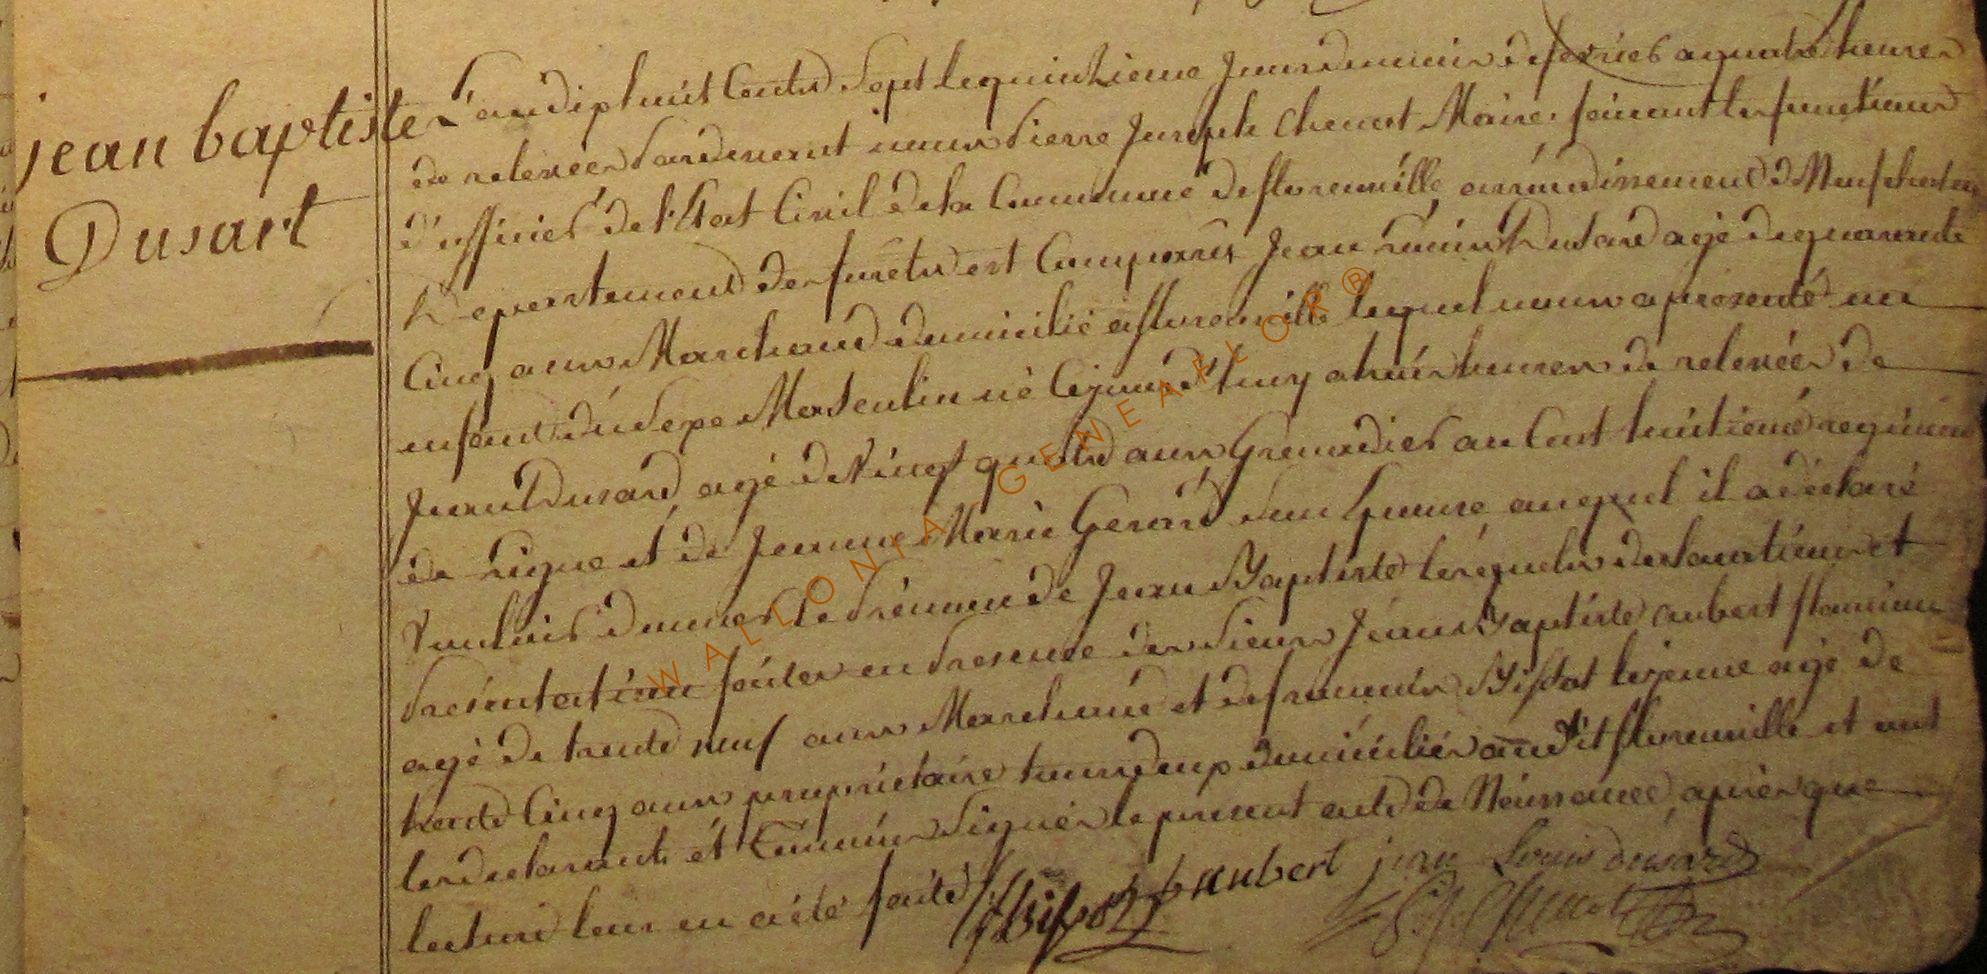 jean baptiste
Dusart
L'an dix huit Cents Sept le quinzieme Jour du mois de fevrier a quatre heures
de relevée Pardevant nous Pierre Joseph Chenot Maire faisant les fonctions
d'officier de l'Etat Civil de la Commune de florenville arrondissement de Neufchateau
Departement des forets est Comparus Jean Louis Dusard agé de quarante
Cinq ans Marchand domicilié a florenville lequel nous a presenté un
enfant du Sexe Masculin né Cejourd'huy a heures de relevée de
Jean Dusard agé de Vingt quatre ans Grenadier au Cent huitieme regiment
de Ligne et de Jeanne Marie Gerard Son Epouse auquel il a déclaré
Vouloir donner le Prénom de Jean Baptiste lesquels declaration et
Présentation faites en Presence des Sieurs Jean Baptiste aubert
agé de trente neuf ans Marchand et de francois Bissot le jeune agé de
trente Cinq ans proprietaire tous deux domiciliés audit florenville et ont
les declarant et témoins Signés le present acte de Naissance, après que
lecture leur en a été faite
aubert jean Louis dusard
P J Chenot
WALLONIA-GENEAFLOR®